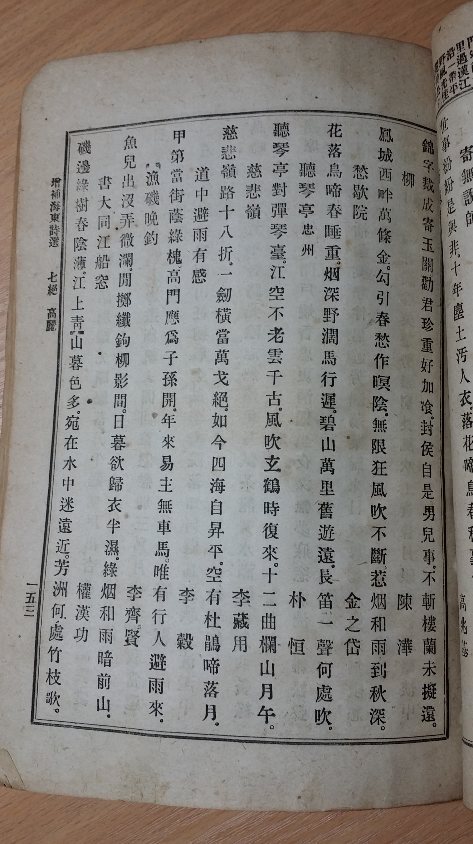 錦字裁成寄玉關勸君珍重好加飡。封侯自是男兒事。不斬樓蘭未擬還。
柳 陳澕
鳳城西畔萬條金。勾引春愁作暝陰。無限狂風吹不斷惹烟和雨到秋深。
愁歇院 金之岱
花落鳥啼春睡重。烟深野濶馬行遲。碧山萬里舊遊遠。長笛一聲何處吹。
聽琴亭 忠州 朴恒
聽琴亭對彈琴臺。江空不老雲千古。風吹玄鶴時復來。十二曲欄山月午。
慈悲嶺 李藏用
慈悲嶺路十八折。一劒橫當萬戈絕。如今四海自昇平。空有杜鵑啼落月。
道中避雨有感 李穀
甲第當街蔭綠槐高門應爲子孫開。年來易主無車馬唯有行人避雨來。
漁磯晚釣 李齊賢
魚兒出沒弄微瀾。閒擲纖鉤柳影間。日暮欲歸衣半濕。綠烟和雨暗前山。
書大同江船窓 權漢功
磯邊綠樹春陰薄。江上靑山暮色多。宛在水中迷遠近。芳洲何處竹枝歌。
增補海東詩選 七絕 高麗 一五三
寄無說師